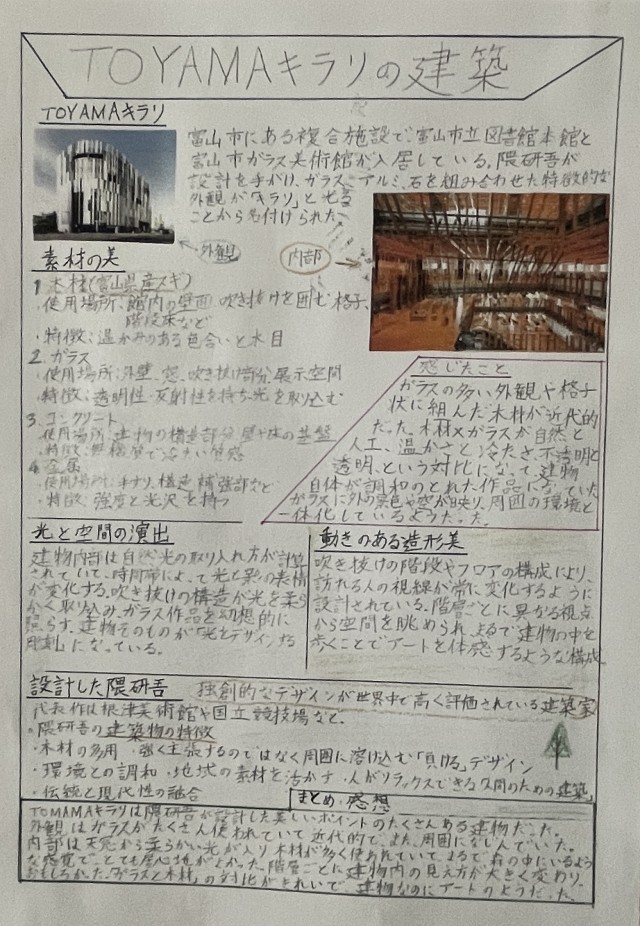 TOYAMAキラリの建築
TOYAMAキラリ
富山市にある複合施設で、富山市立図書館本館と
富山市ガラス美術館が入居している。隈研吾が
設計を手がけ、ガラス、アルミ、石を組み合わせた特徴的な
外観が「キラリ」と光る
ことから名付けられた。
外観
内部
素材の美
1 木材(富山県産スギ)
・使用場所:館内の壁面 吹き抜けを囲む格子、
階段床など
・特徴:温かみのある色合いと木目
2. ガラス
・使用場所:外壁、窓、吹き抜け部分、展示空間
・特徴:透明性・反射性を持ち光を取り込む
3. コンクリート
・使用場所:建物の構造部分 壁や床の基盤
・特徴:無機質で冷たい質感
4. 金属
・使用場所:手すり、構造 補強部など
・特徴:強度と光沢を持つ
感じたこと
ガラスの多い外観や格子
状に組んだ木材が近代的
だった。木材×ガラスが自然と
人工、温かさと冷たさ、不透明と
透明、という対比になって、建物
自体が調和のとれた作品になっていた
ガラスに外の景色や空が映り、周囲の環境と
一体化しているようだった。
光と空間の演出
建物内部は自然光の取り入れ方が計算
されていて、時間帯によって光と影の表情
が変化する。吹き抜けの構造が光を柔ら
かく取り込み、ガラス作品を幻想的に
照らす。建物そのものが「光をデザインする
彫刻」になっている。
動きのある造形美
吹き抜けの階段やフロアの構成により、
訪れる人の視線が常に変化するように
設計されている。階層ごとに異なる視点
から空間を眺められ、まるで建物の中を
歩くことでアートを体感するような構成
設計した隈研吾 独創的なデザインが世界中で高く評価されている建築家
代表作は根津美術館や国立競技場など。
・隈研吾の建築物の特徴
・木材の多用 ・強く主張するのではなく周囲に溶け込む「負ける」デザイン
・環境との調和 ・地域の素材を活かす ・人がリラックスできる人間のための建築
・伝統と現代性の融合
まとめ・感想
TOMAMAキラリは隈研吾が設計した美しいポイントのたくさんある建物だった。
外観はガラスがたくさん使われていて近代的で、また、周囲になじんでいた。
内部は天窓から柔らかい光が入り木材が多く使われていて、まるで森の中にいるよう
な感覚で、とても居心地がよかった。階層ごとに建物内の見え方が大きく変わり、
おもしろかった。「ガラスと木材」の対比がきれいで、建物なのにアートのようだった。